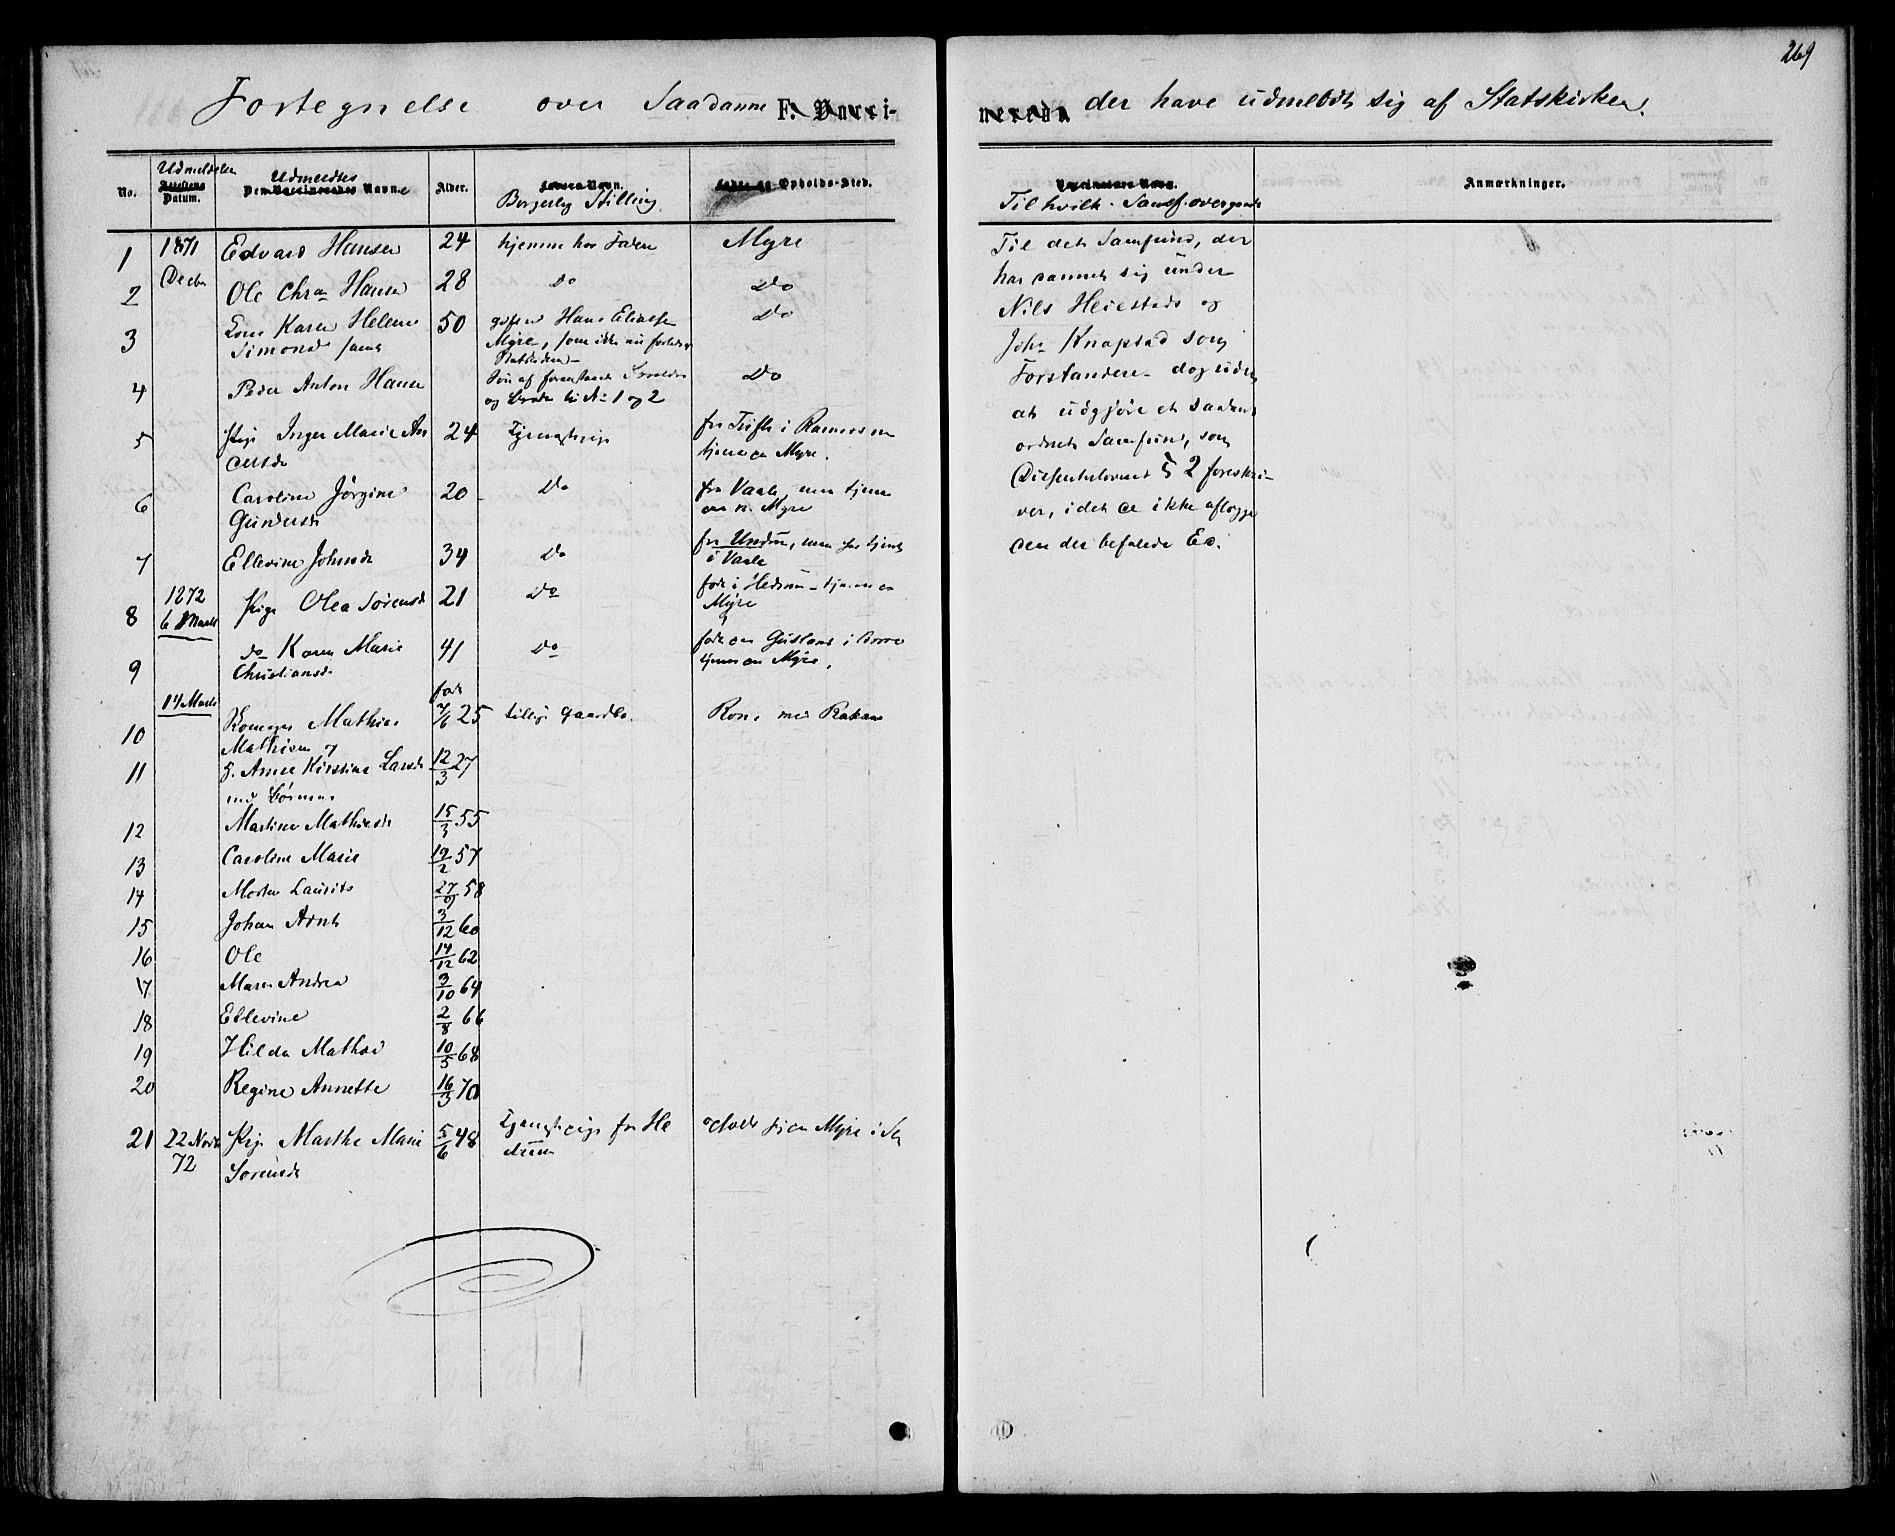 269
Fortegnelse over Saadanne F. Vacci-nerede der have udmeldt sig af Statskirken.
No.
Udmeldelse
Attestens
Datum.
Udmeldtes
Den Vaccineredes Navn.
Alder.
Navn.
Borgerlig Stilling
Opholds-Sted.
Vaccinateurs Navn.
Til hvilk. Samf. overgaaet
Anmærkninger.
1 1871 Edvard Hansen 24 hjemme hos Faderen Myre
Decbr
2 Ole Chr. Hansen 28 Do Do
3 Karen Helene 50 Hans Eliasen Do
Simonsd samt Myre, som ikke nu forlader
Statskirken
4 Peder Anton Hansen Søn af foranstaaende Forældre Do
og Broder til No 1 og 2
5 Pige Inger Marie An 24 Tjenestepige fra i Ramnes
dersd tjener paa Myre.
6 Caroline Jørgine 20 Do fra Vaale, men tjener
Gundersd paa n. Myre
7 Ellevine Johnsd 34 Do fra Undrum, men har tjent
i Vaale
8 1872 Pige Olea Sørensd 21 Do født i Hedrum - tjener paa
6 Marts Myre
9 do Karen Marie 41 Do født paa i Borre
Christiansd tjener paa Myre.
14 Marts født
10 Mathias 7/6 25 Gaardbr.
Mathisen
11 Anne Kirstine Larsd 12/3 27
med Børnene
12 Martine Mathisd 15/3 55
13 Caroline Marie 19/2 57
14 Morten Laurits 27/9 58
15 Johan Arnt 3/12 60
16 Ole 14/12 62
17 Maren Andrea 3/10 64
18 Ellevine 2/8 66
19 Hilda Mathea 10/5 68
20 Regine Annette 16/3 70
21 22 Novbr Pige Marthe Marie 5/6 48 Tjenestepige fra He
72 Sørensd drum
Til det Samfund, der
har dannet sig under
Nils Heiestad og
Joh. Knapstad som
Forstandere - dog uden
at udgjøre et saadant
ordnet Samfund, som
Dissenterloven § 2 foreskri-
ver, idet de ikke aflægge
den der befalede Ed.